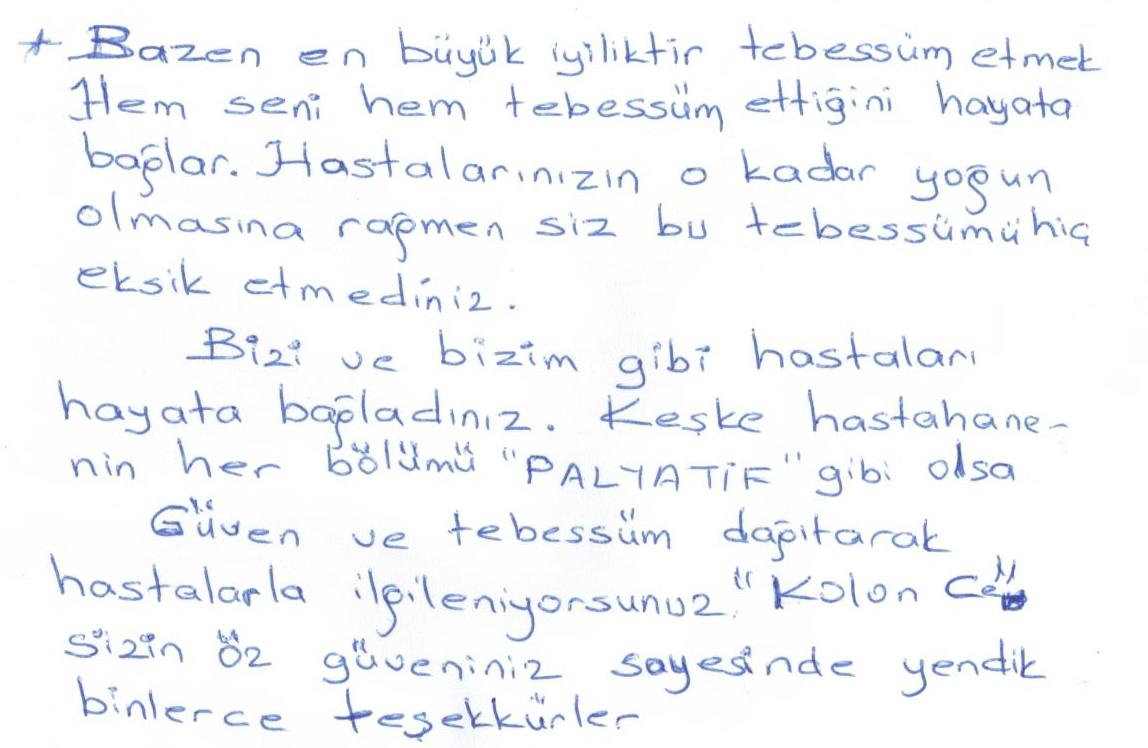 * Bazen en büyük iyiliktir tebessüm etmek
Hem seni hem tebessüm ettiğini hayata
bağlar. Hastalarınızın o kadar yoğun
olmasına rağmen siz bu tebessümü hiç
eksik etmediniz.
Bizi ve bizim gibi hastaları
hayata bağladınız. Keşke hastahane-
nin her bölümü "PALYATİF" gibi olsa
Güven ve tebessüm dağıtarak
hastalarla ilgileniyorsunuz. "Kolon
sizin öz güveniniz sayesinde yendik
binlerce teşekkürler